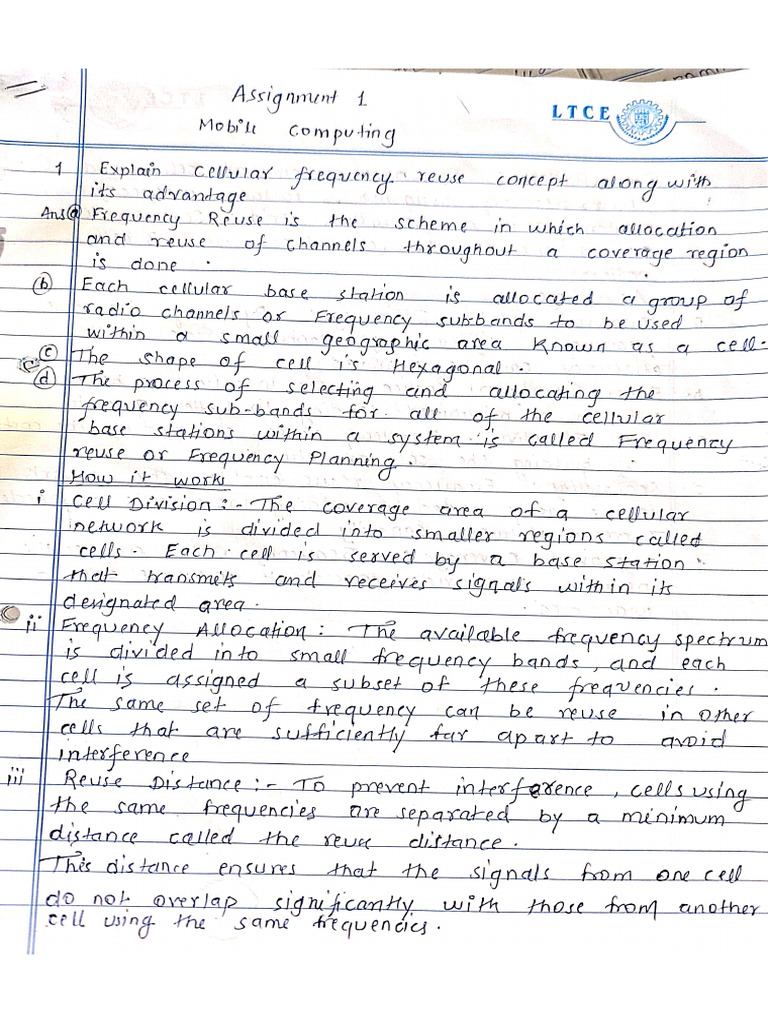 Assignment 1
LTCE
Mobile Computing
1 Explain cellular frequency reuse concept along with
its advantage
Ans (a) Frequency Reuse is the scheme in which allocation
and reuse of channels throughout a coverage region
is done.
(b) Each cellular base station is allocated a group of
radio channels or Frequency sub-bands to be used
within a small geographic area known as a cell.
(c) The shape of cell is Hexagonal.
(d) The process of selecting and allocating the
frequency sub-bands for all of the cellular
base stations within a system is called Frequency
reuse or Frequency Planning.
How it works
i Cell Division :- The coverage area of a cellular
network is divided into smaller regions called
cells. Each cell is served by a base station
that transmits and receives signals within its
designated area.
ii Frequency Allocation : The available frequency spectrum
is divided into small frequency bands, and each
cell is assigned a subset of these frequencies.
The same set of frequency can be reuse in other
cells that are sufficiently far apart to avoid
interference
iii Reuse Distance :- To prevent interference, cells using
the same frequencies are separated by a minimum
distance called the reuse distance.
This distance ensures that the signals from one cell
do not overlap significantly with those from another
cell using the same frequencies.